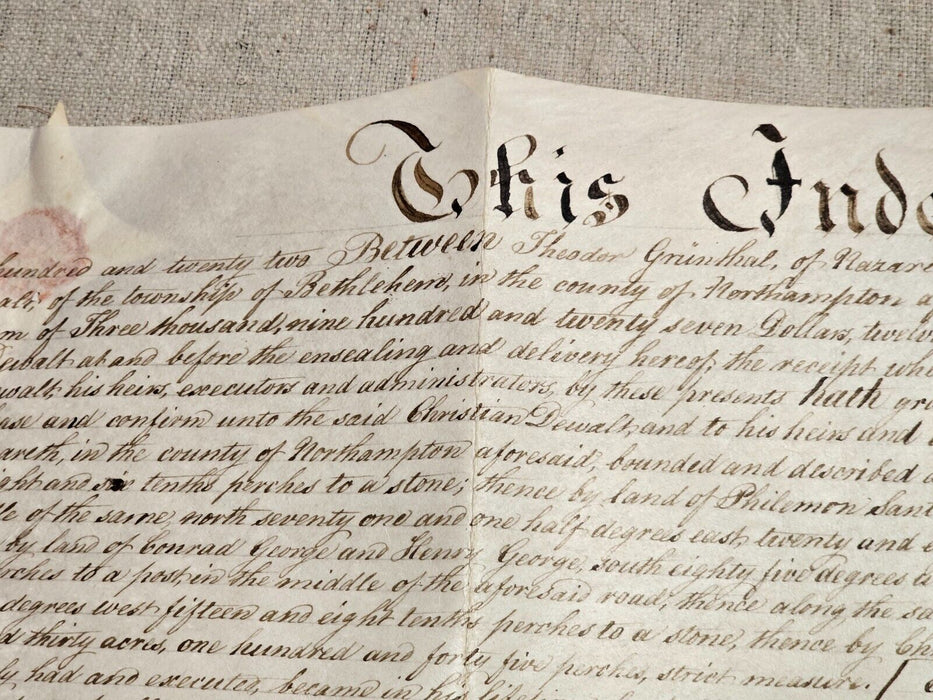 This Inde
hundred and twenty two Between Theodor Grünthal, of Nazare
alt, of the township of Bethlehem, in the county of Northampton a
m of Three thousand, nine hundred and twenty seven Dollars, twelve
Dewalt at and before the ensealing and delivery hereof, the receipt whe
walt, his heirs, executors and administrators, by these presents hath gra
ase and confirm unto the said Christian Dewalt, and to his heirs and a
areth, in the county of Northampton aforesaid, bounded and described a
ight and six tenths perches to a stone; thence by land of Philemon San
le of the same, north seventy one and one half degrees east, twenty and e
by land of Conrad George and Henry George, south eighty five degrees e
rches to a post, in the middle of the aforesaid road; thence along the sa
degrees west fifteen and eight tenths perches to a stone, thence by Ch
d thirty acres, one hundred and forty five perches, strict measure.
ly had and executed, became in his lifetime